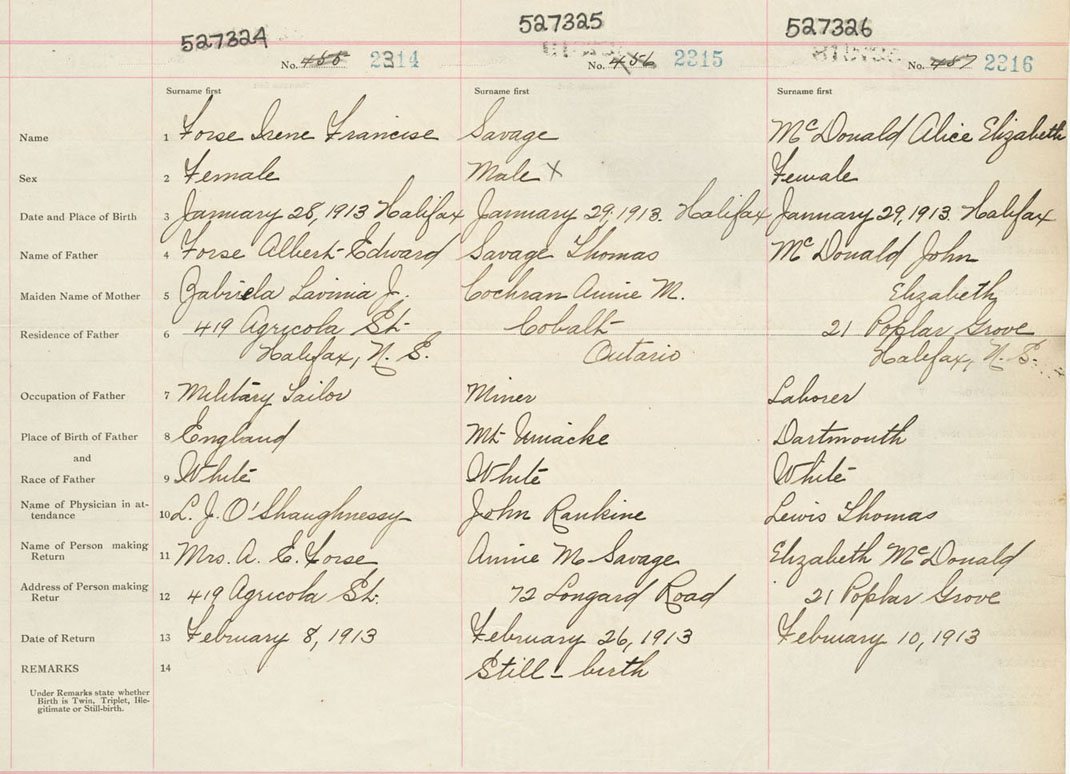 527324 527325 527326
No. 455 2314 No. 456 2315 No. 457 2316
Surname first Surname first Surname first
Name 1 Forse Irene Francise Savage McDonald Alice Elizabeth
Sex 2 Female Male X Female
Date and Place of Birth 3 January 28, 1913 Halifax January 29, 1913. Halifax January 29, 1913. Halifax
Name of Father 4 Forse Albert Edward Savage Thomas McDonald John
Maiden Name of Mother 5 Gabriela Lavinia J. Cochran Annie M. Elizabeth
Residence of Father 6 419 Agricola St. Cobalt 21 Poplar Grove
Halifax, N. S. Ontario Halifax, N. S.
Occupation of Father 7 Military Tailor Miner Laborer
Place of Birth of Father 8 England Mt Uniacke Dartmouth
and
Race of Father 9 White White White
Name of Physician in at-
tendance 10 L. J. O'Shaughnessy John Rankine Lewis Thomas
Name of Person making
Return 11 Mrs. A. E. Forse Annie M. Savage Elizabeth McDonald
Address of Person making
Retur 12 419 Agricola St. 72 Longard Road 21 Poplar Grove
Date of Return 13 February 8, 1913 February 26, 1913 February 10, 1913
REMARKS 14 Still-birth
Under Remarks state whether
Birth is Twin, Triplet, Ille-
gitimate or Still-birth.